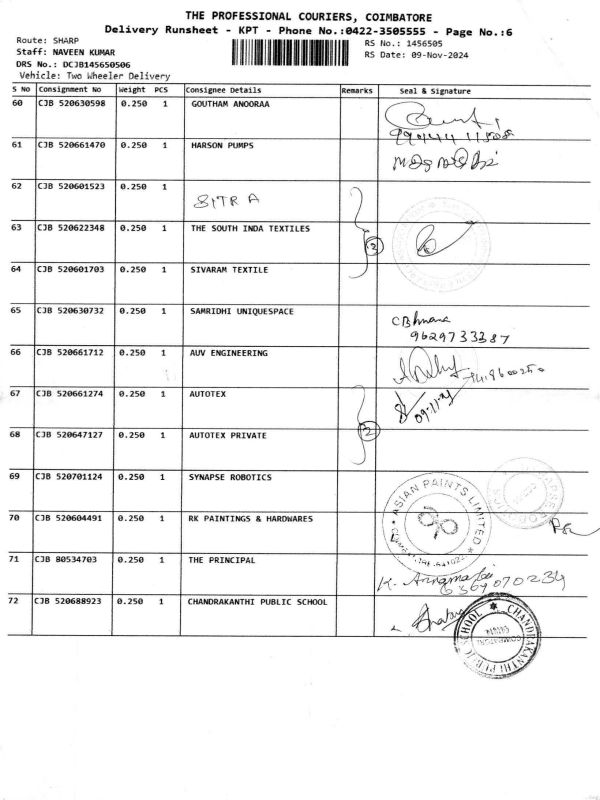 THE PROFESSIONAL COURIERS, COIMBATORE
Delivery Runsheet - KPT - Phone No.:0422-3505555 - Page No.:6
Route: SHARP
RS No.: 1456505
Staff: NAVEEN KUMAR
RS Date: 09-Nov-2024
DRS No.: DCJB145650506
Vehicle: Two Wheeler Delivery
S No Consignment No Weight PCS Consignee Details Remarks Seal & Signature
60 CJB 520630598 0.250 1 GOUTHAM ANOORAA
61 CJB 520661470 0.250 1 HARSON PUMPS
62 CJB 520601523 0.250 1 SITRA
63 CJB 520622348 0.250 1 THE SOUTH INDA TEXTILES 2
64 CJB 520601703 0.250 1 SIVARAM TEXTILE
65 CJB 520630732 0.250 1 SAMRIDHI UNIQUESPACE
9629733387
66 CJB 520661712 0.250 1 AUV ENGINEERING
67 CJB 520661274 0.250 1 AUTOTEX
68 CJB 520647127 0.250 1 AUTOTEX PRIVATE 2
69 CJB 520701124 0.250 1 SYNAPSE ROBOTICS
ASIAN PAINTS LIMITED
70 CJB 520604491 0.250 1 RK PAINTINGS & HARDWARES
71 CJB 80534703 0.250 1 THE PRINCIPAL
6369070234
72 CJB 520688923 0.250 1 CHANDRAKANTHI PUBLIC SCHOOL
CHANDRAKANTHI PUBLIC SCHOOL